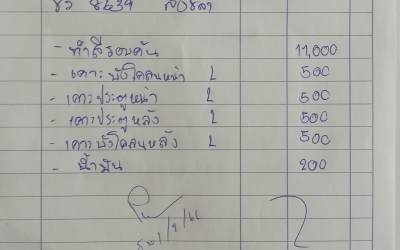 ขว 8639 สงขลา
- ทำสีรอบคัน 11,000
- เคาะบังโคลนหน้า L 500
- เคาะประตูหน้า L 500
- เคาะประตูหลัง L 500
- เคาะบังโคลนหลัง L 500
- น้ำมัน 200